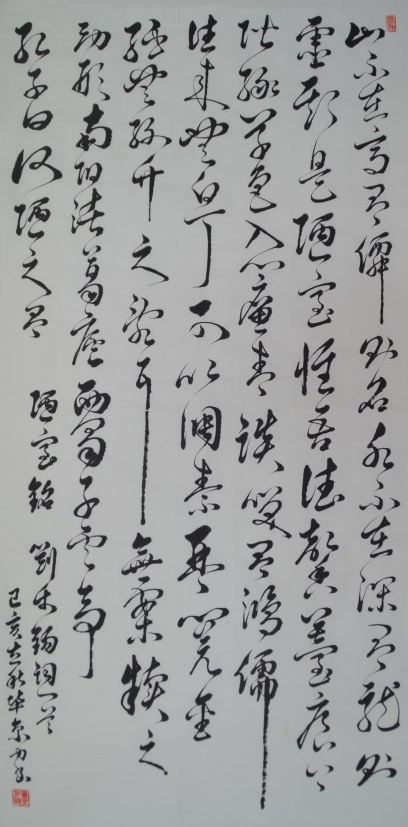 山不在高有僊則名水不在深有龍則
靈斯是陋室惟吾德馨苔痕上
階綠草色入簾青談笑有鴻儒
往來無白丁可以調素琴閱金
經無絲竹之亂耳無案牘之
勞形南陽諸葛廬西蜀子雲亭
孔子曰何陋之有 陋室銘 劉禹錫詞一首
己亥